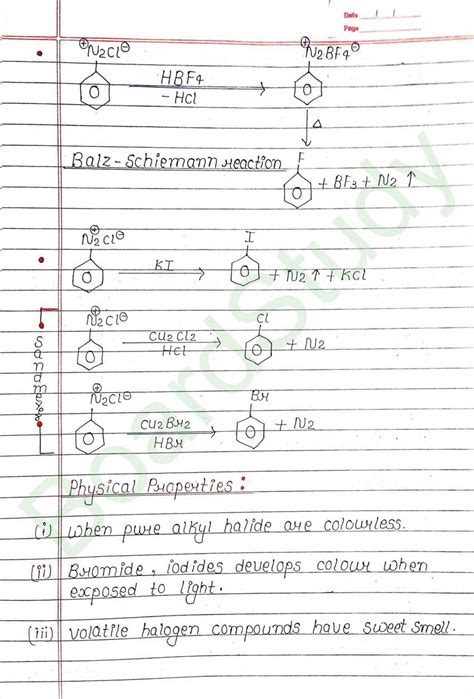 Date / /
Page
⊕N2Cl⊖ ⊕N2BF4⊖
HBF4
- HCl
△
Balz-Schiemann reaction F
+ BF3 + N2 ↑
⊕N2Cl⊖ I
KI + N2↑ + KCl
⊕N2Cl⊖ Cl
Cu2Cl2
HCl + N2
Sandmeyer
⊕N2Cl⊖ Br
Cu2Br2
HBr + N2
Physical Properties :
(i) When pure alkyl halide are colourless.
(ii) Bromide, iodides develops colour when
exposed to light.
(iii) volatile halogen compounds have sweet smell.
BoardStudy